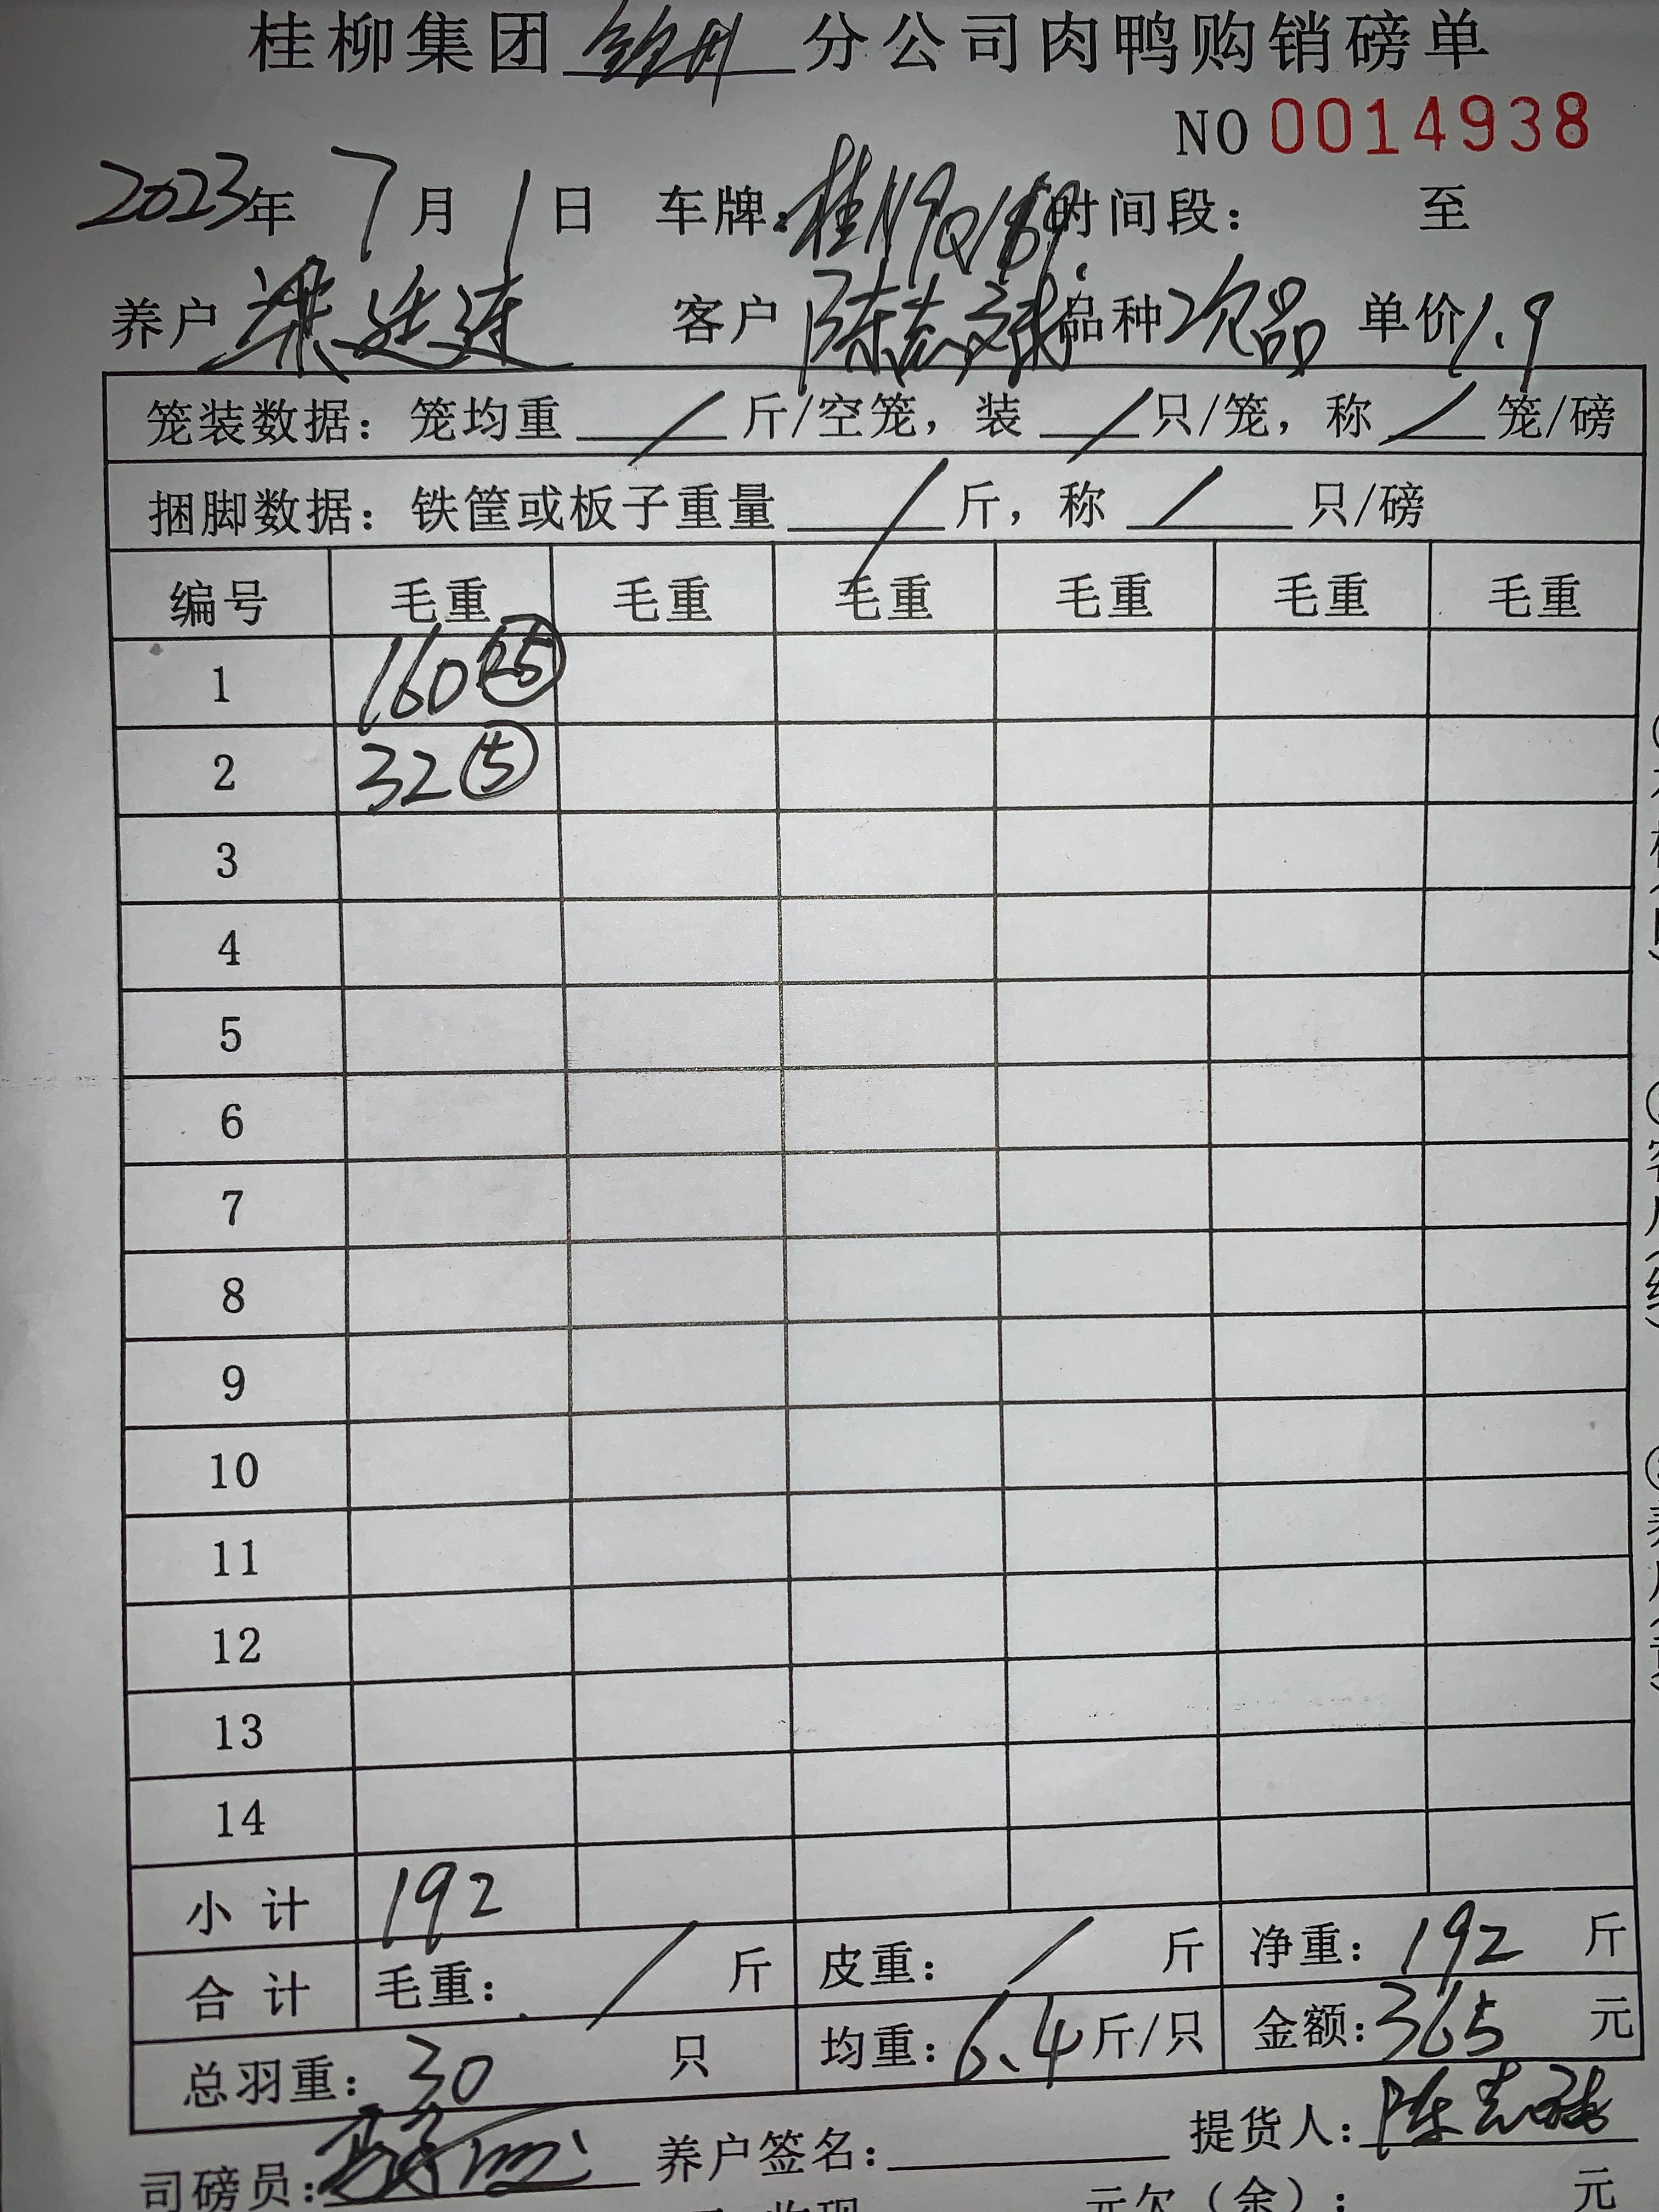 桂柳集团 分公司肉鸭购销磅单
NO 0014938
2023年 7月 1日 车牌: 时间段: 至
养户 梁 连 客户 陈志 品种 次品 单价 1.9
笼装数据: 笼均重 / 斤/空笼, 装 / 只/笼, 称 / 笼/磅
捆脚数据: 铁筐或板子重量 / 斤, 称 / 只/磅
编号 毛重 毛重 毛重 毛重 毛重 毛重
1 160 25
2 32 5
3
4
5
6
7
8
9
10
11
12
13
14
小计 192
合计 毛重: / 斤 皮重: / 斤 净重: 192 斤
总羽重: 30 只 均重: 6.4 斤/只 金额: 365 元
司磅员: 养户签名: 提货人: 陈志
元欠(余): 元